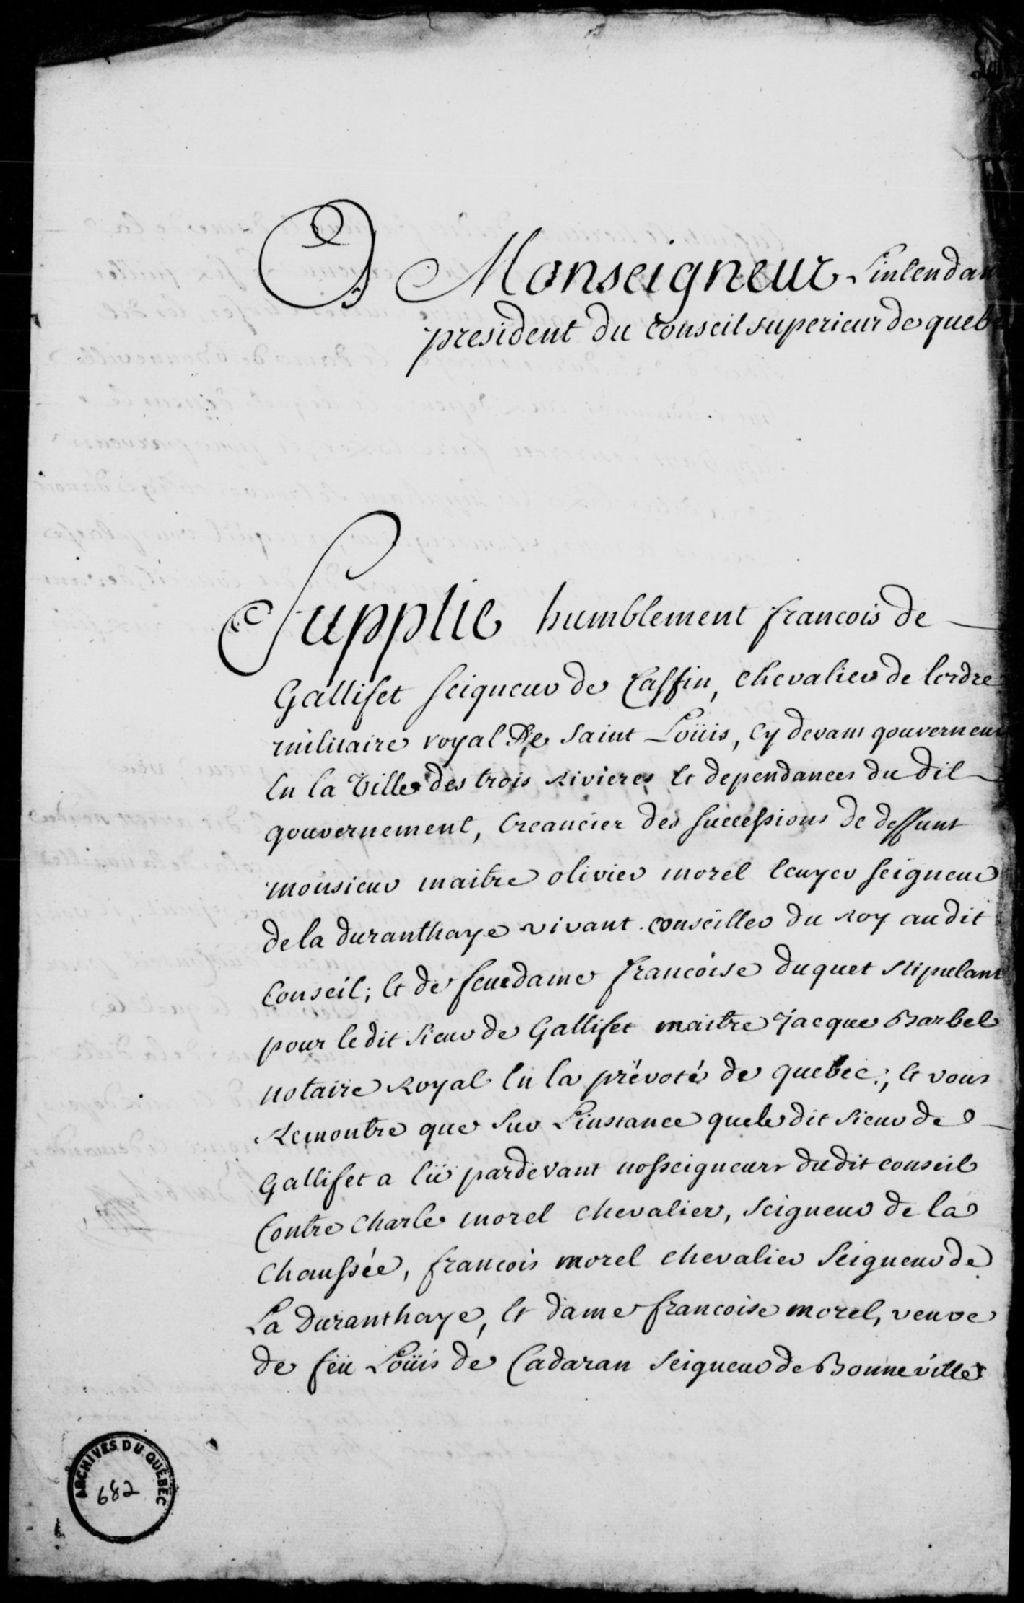 A Monseigneur Lintendan
president du Conseil superieur de queb
Supplie humblement francois de
Gallifet seigneur de Caffin, chevalier de lordre
militaire royal De Saint Loüis, Cy devant gouverneur
En la Ville des trois Rivieres Et dependances du dit
gouvernement, Creancier des successions de deffunt
monsieur maitre olivier morel Ecuyer seigneur
de la duranthaye vivant conseiller du Roy au dit
Conseil; Et de feue dame francoise duquet stipulant
pour le dit sieur de Gallifet maitre Jacque Barbel
notaire Royal En la prévoté de quebec; Et vous
Remontre que sur Linstance que le dit sieur de
Gallifet a Eü pardevant nosseigneurs du dit conseil
Contre Charle morel chevalier, seigneur de la
Chaussée, francois morel chevalier seigneur de
La Duranthaye, Et dame francoise morel, veuve
de feu Loüis de Cadaran seigneur de Bonneville
ARCHIVES DU QUÉBEC
682